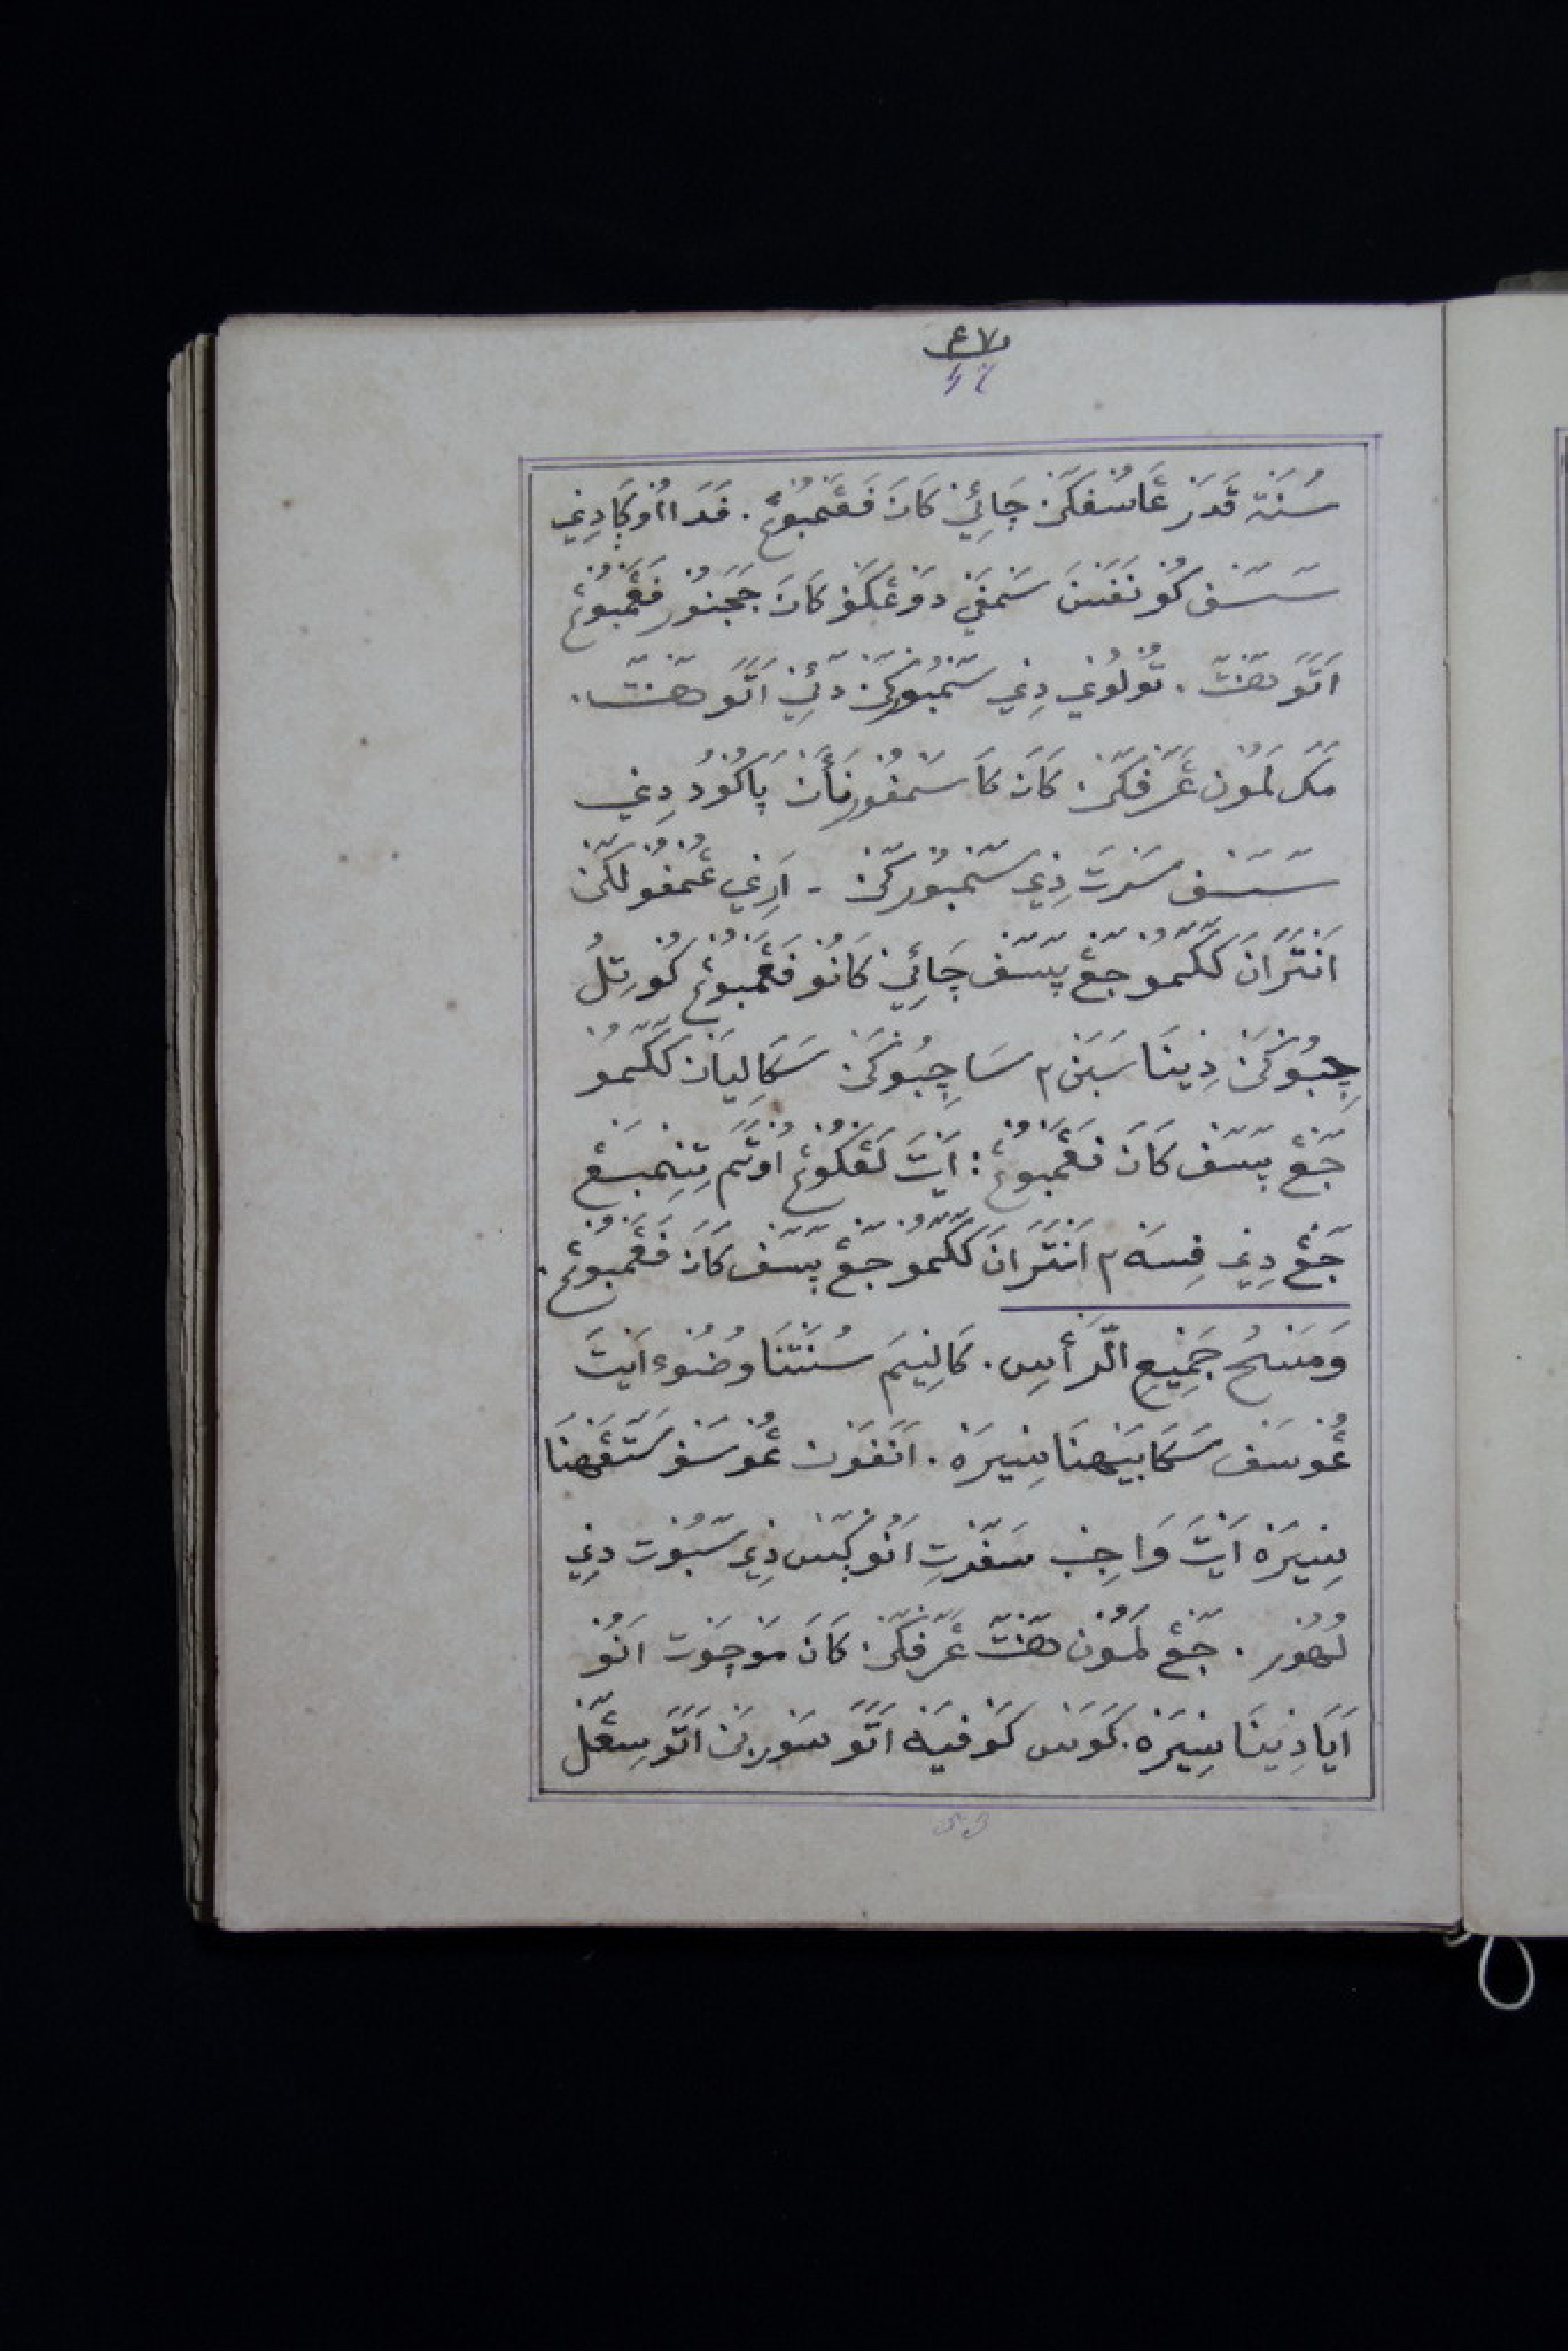 ٤٧
47
سُنَتْ قَدَرَ عَاسُفَكَنْ چَائِيْ كَانَ فَڠَمْبُوْڠْ. فَدَ اُوْكَادِيْ
سَسَف كُوْنَفَسَ سَمْفَيْ دَوَعَكَوْ كَانَ جَجَنُوْر فَڠَمْبُوْڠْ
اَتَوَ هَنْتَ. تُوْلُوْيْ دِيْ سَمْبُوْركَنْ دَئِيْ اَتَوَ هَنْتَ.
مَكَ لَمُوْن عَرَفَكَنْ كَانَ كَاسَمْفُوْرنَأَنْ پَاكُوْدُ دِيْ
سَسَف سَرَتَ دِيْ سَمْبُوْركَنْ - اَرِيْ عُمْفُوْلَكَنْ
اَنْتَرَانَ كَكَمُوْ جَڠْ پَسَف چَائِيْ كَانُوْ فَڠَمْبُوْڠْ كُوْ تِلُ
چِبُوْكَنْ دِيْنَا سَبَنَ٢ سَاچِبُوْكَنْ سَكَالِيَانْ كَكَمُوْ
جَڠْ پَسَف كَانَ فَڠَمْبُوْڠْ: اَيْتَ لَڠْكُوْڠْ اُوْتَمَ تِنِمْبَڠْ
جَڠْ دِيْ فِسَه٢ اَنْتَرَانَ كَكَمُوْ جَڠْ پَسَف كَانَ فَڠَمْبُوْڠْ.
وَمَسْحُ جَمِيْعِ الرَّأْسِ. كَالِيْمَ سُنَتْنَا وُضُوْء اَيْتَ
عُوْسَف سَكَابَيْهْنَا سِيْرَهْ. اَنَفَوْن عُوْسَف سَتَڠَهْنَا
سِيْرَهْ اَيْتَ وَاجِب سَفَرْتِ اَنُوْ كَس دِيْ سَبُوْت دِيْ
لُهُوْر. جَڠْ لَمُوْن هَنْتَ عَرَفَكَنْ كَانَ مَوْچَوْت اَنُوْ
اَيَا دِيْنَا سِيْرَهْ. كَوَس كَوْفِيَهْ اَتَوَ سَوْرْبَنْ اَتَوَ سِعَل